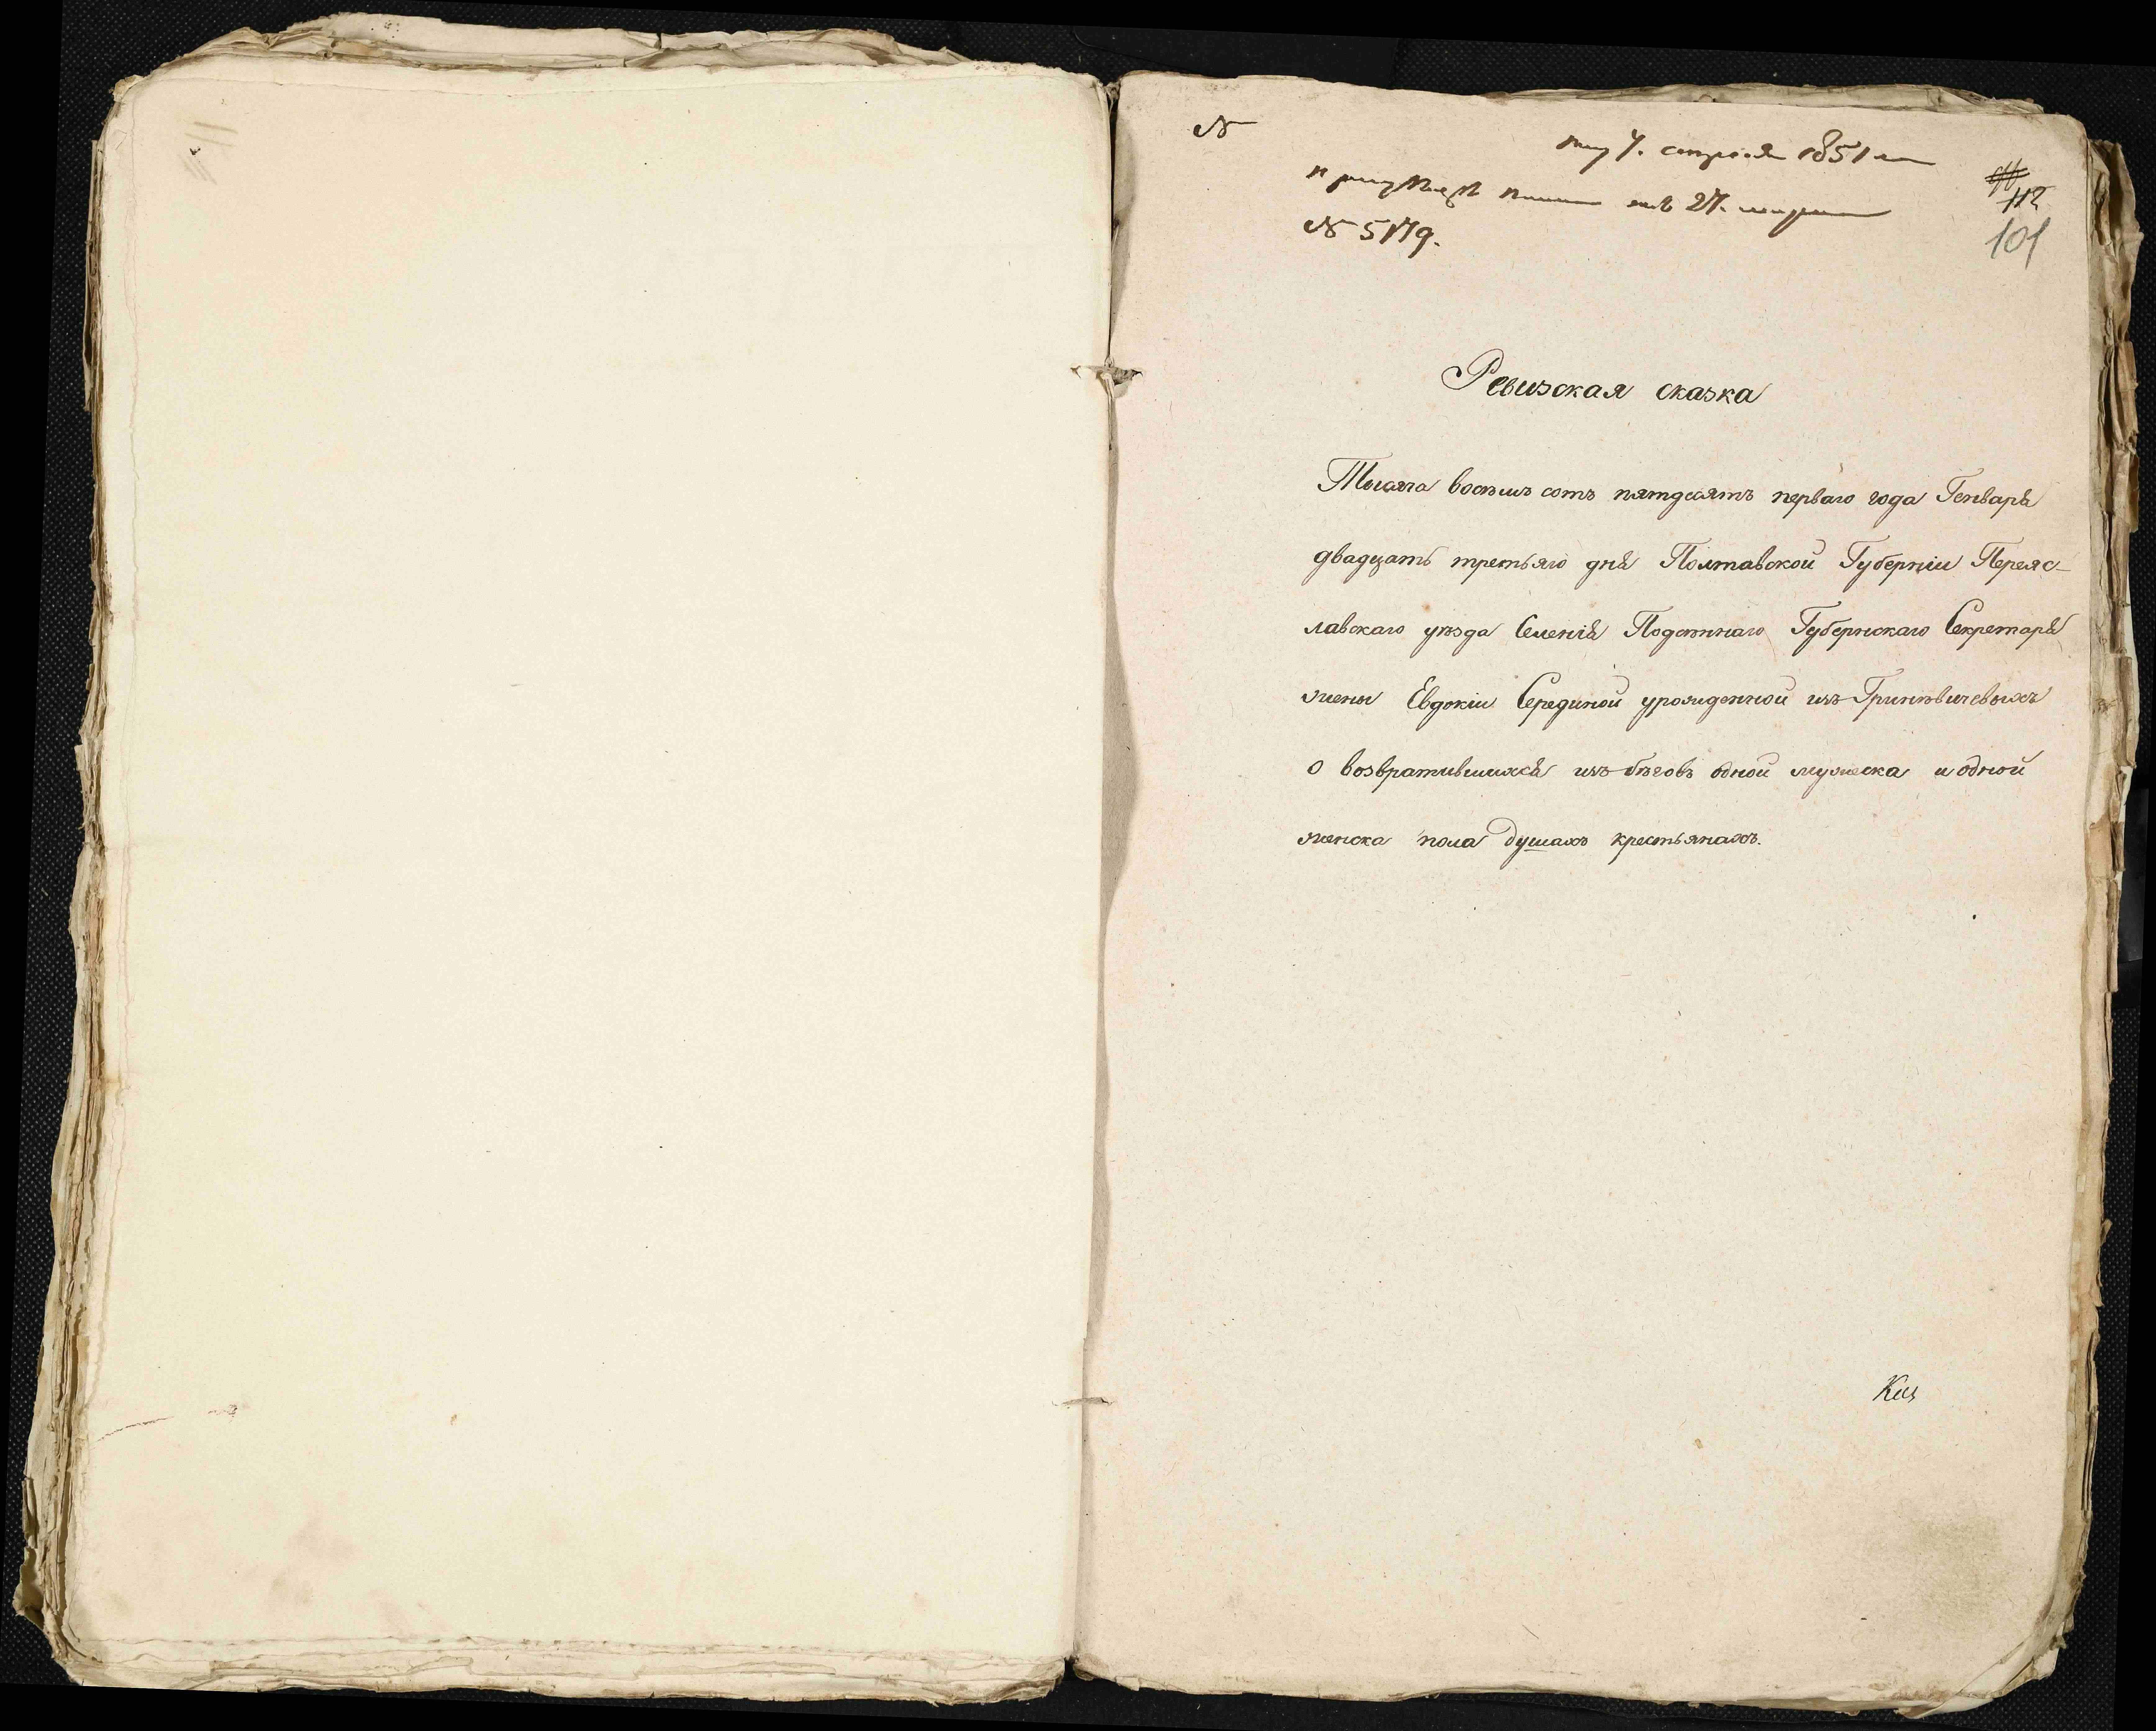 №
7. апреля 1851
112
101
27. марта
№ 5179.
Ревизская сказка
Тысяча восемь сотъ пятдесятъ перваго года Генваря
двадцать третьяго дня Полтавской Губерніи Переяс-
лавскаго уѣзда Селенія Подстпнаго Губернскаго Секретаря
жены Евдокіи Серединой урожденной изъ Гринѣвичевыхъ
о возвратившихся изъ бѣговъ одной мужеска и одной
женска пола душахъ крестьянахъ.